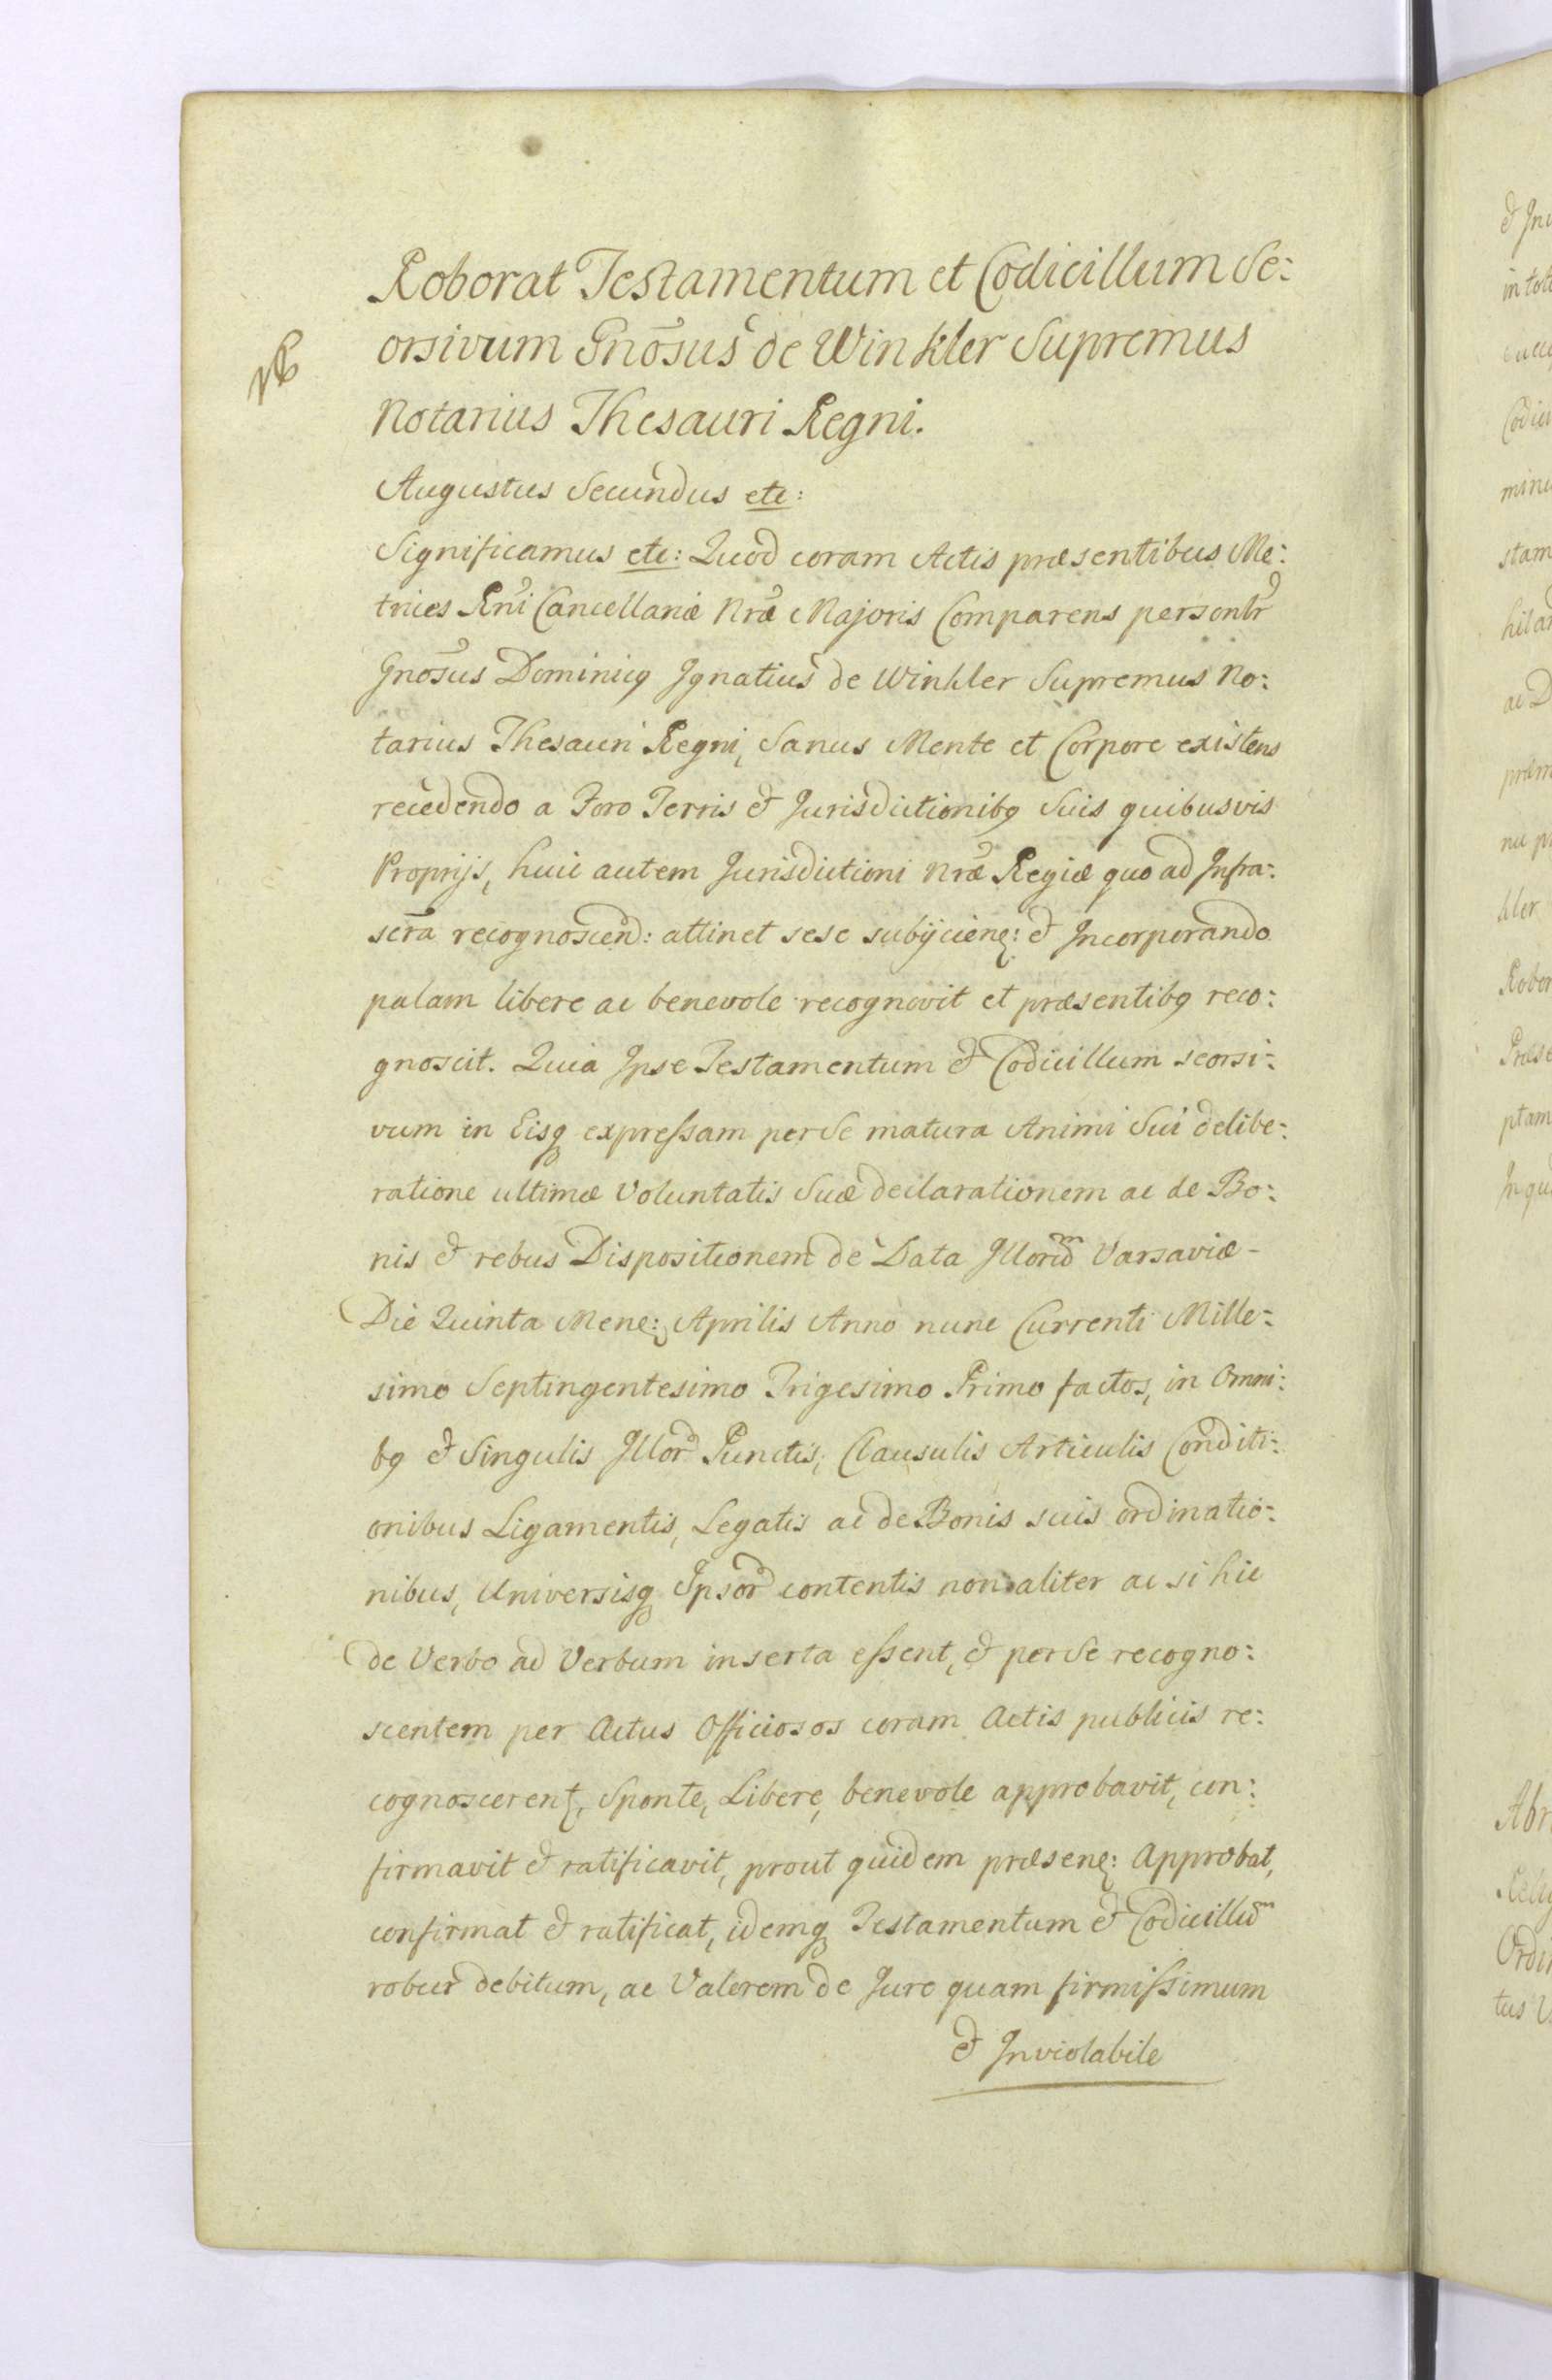 Roborat Testamentum et Codicillum Se:
orsivum Gnōsus de Winkler Supremus
Notarius Thesauri Regni.
Augustus Secundus etc:
Significamus etc: Quod coram Actis præsentibus Me:
trices Rñi Cancellariæ Nræ Majoris Comparens personlr
Gnōsus Dominicq Ignatius de Winkler Supremus No:
tarius Thesauri Regni, Sanus Mente et Corpore existens
recedendo a Foro Terris & Jurisdictionibq Suis quibusvis
Proprijs, huic autem Jurisdictioni Nræ Regiæ quo ad Infra:
scra recognoscend: attinet sese subijcienę: & Incorporando
palam libere ac benevole recognovit et præsentibq reco:
gnoscit. Quia Ipse Testamentum & Codicillum seorsi:
vum in Eisq expressam per Se matura Animi Sui delibe:
ratione ultimæ Voluntatis Suæ declarationem ac de Bo:
nis & rebus Dispositionem de Data Illorum Varsaviæ -
Die Quinta Menę: Aprilis Anno nunc Currenti Mille:
simo Septingentesimo Trigesimo Primo factos, in Omni:
bq & Singulis Illor Punctis, Clausulis Articulis Conditi:
onibus Ligamentis, Legatis ac de Bonis suis ordinatio:
nibus, Universisq Ipsor contentis non aliter ac si hic
de Verbo ad Verbum inserta essent, & per Se recogno:
scentem per Actus Officiosos coram Actis publicis re:
cognoscerent, Sponte, Libere, benevole approbavit, con:
firmavit & ratificavit, prout quidem præsenę: Approbat,
confirmat & ratificat, idemq Testamentum & Codicillum
robur debitum, ac Valorem de Jure quam firmissimum
& Inviolabile